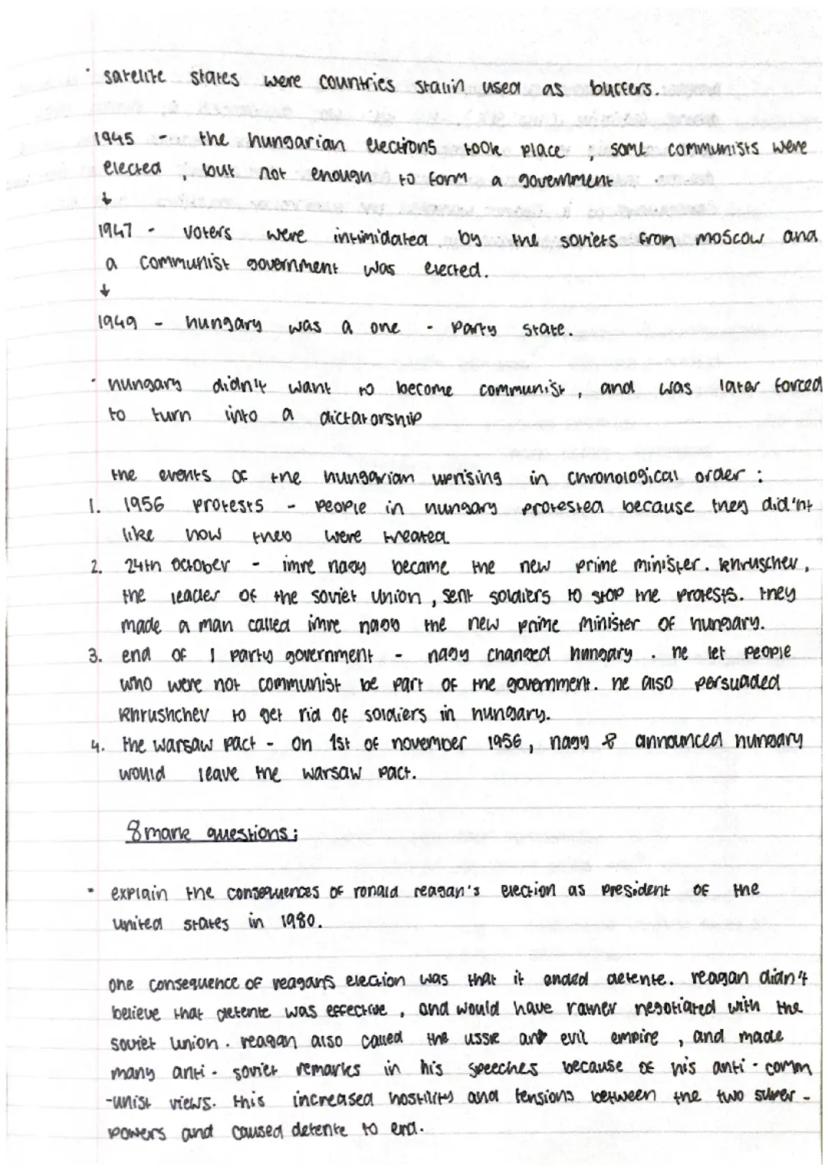 · satelite states were countries stalin used as buffers.
1945 - the hungarian elections took place ; some communists were
elected , but not enough to form a government
↓
1947 - voters were intimidated by the soviets from moscow and
a communist government was elected.
↓
1949 - hungary was a one - party state.
· hungary didn't want to become communist , and was later forced
to turn into a dictatorship
the events of the hungarian uprising in chronological order :
1. 1956 protests - people in hungary protested because they did'nt
like how they were treated
2. 24th october - imre nagy became the new prime minister. khruschev,
the leader of the soviet union , sent soldiers to stop the protests. they
made a man called imre nagy the new prime minister of hungary.
3. end of 1 party government - nagy changed hungary . he let people
who were not communist be part of the government. he also persuaded
khrushchev to get rid of soldiers in hungary.
4. the warsaw pact - on 1st of november 1956 , nagy announced hungary
would leave the warsaw pact.
8 mark questions :
· explain the consequences of ronald reagan's election as president of the
united states in 1980.
one consequence of reagan's election was that it ended detente. reagan didn't
believe that detente was effective , and would have rather negotiated with the
soviet union . reagan also called the ussr an evil empire , and made
many anti - soviet remarks in his speeches because of his anti - comm
-unist views. this increased hostility and tensions between the two super -
powers and caused detente to end.